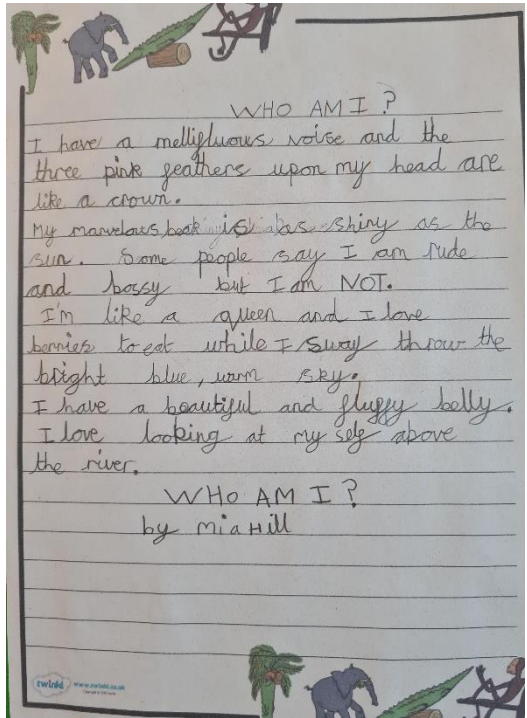 WHO AM I?
I have a mellifluous noise and the
three pink feathers upon my head are
like a crown.
My marvelous beak is as shiny as the
sun. Some people say I am rude
and bossy but I am NOT.
I'm like a queen and I love
berries to eat while I sway throw the
bright blue, warm sky.
I have a beautiful and fluffy belly.
I love looking at my self above
the river.
WHO AM I?
by Mia Hill
twinkl www.twinkl.co.uk